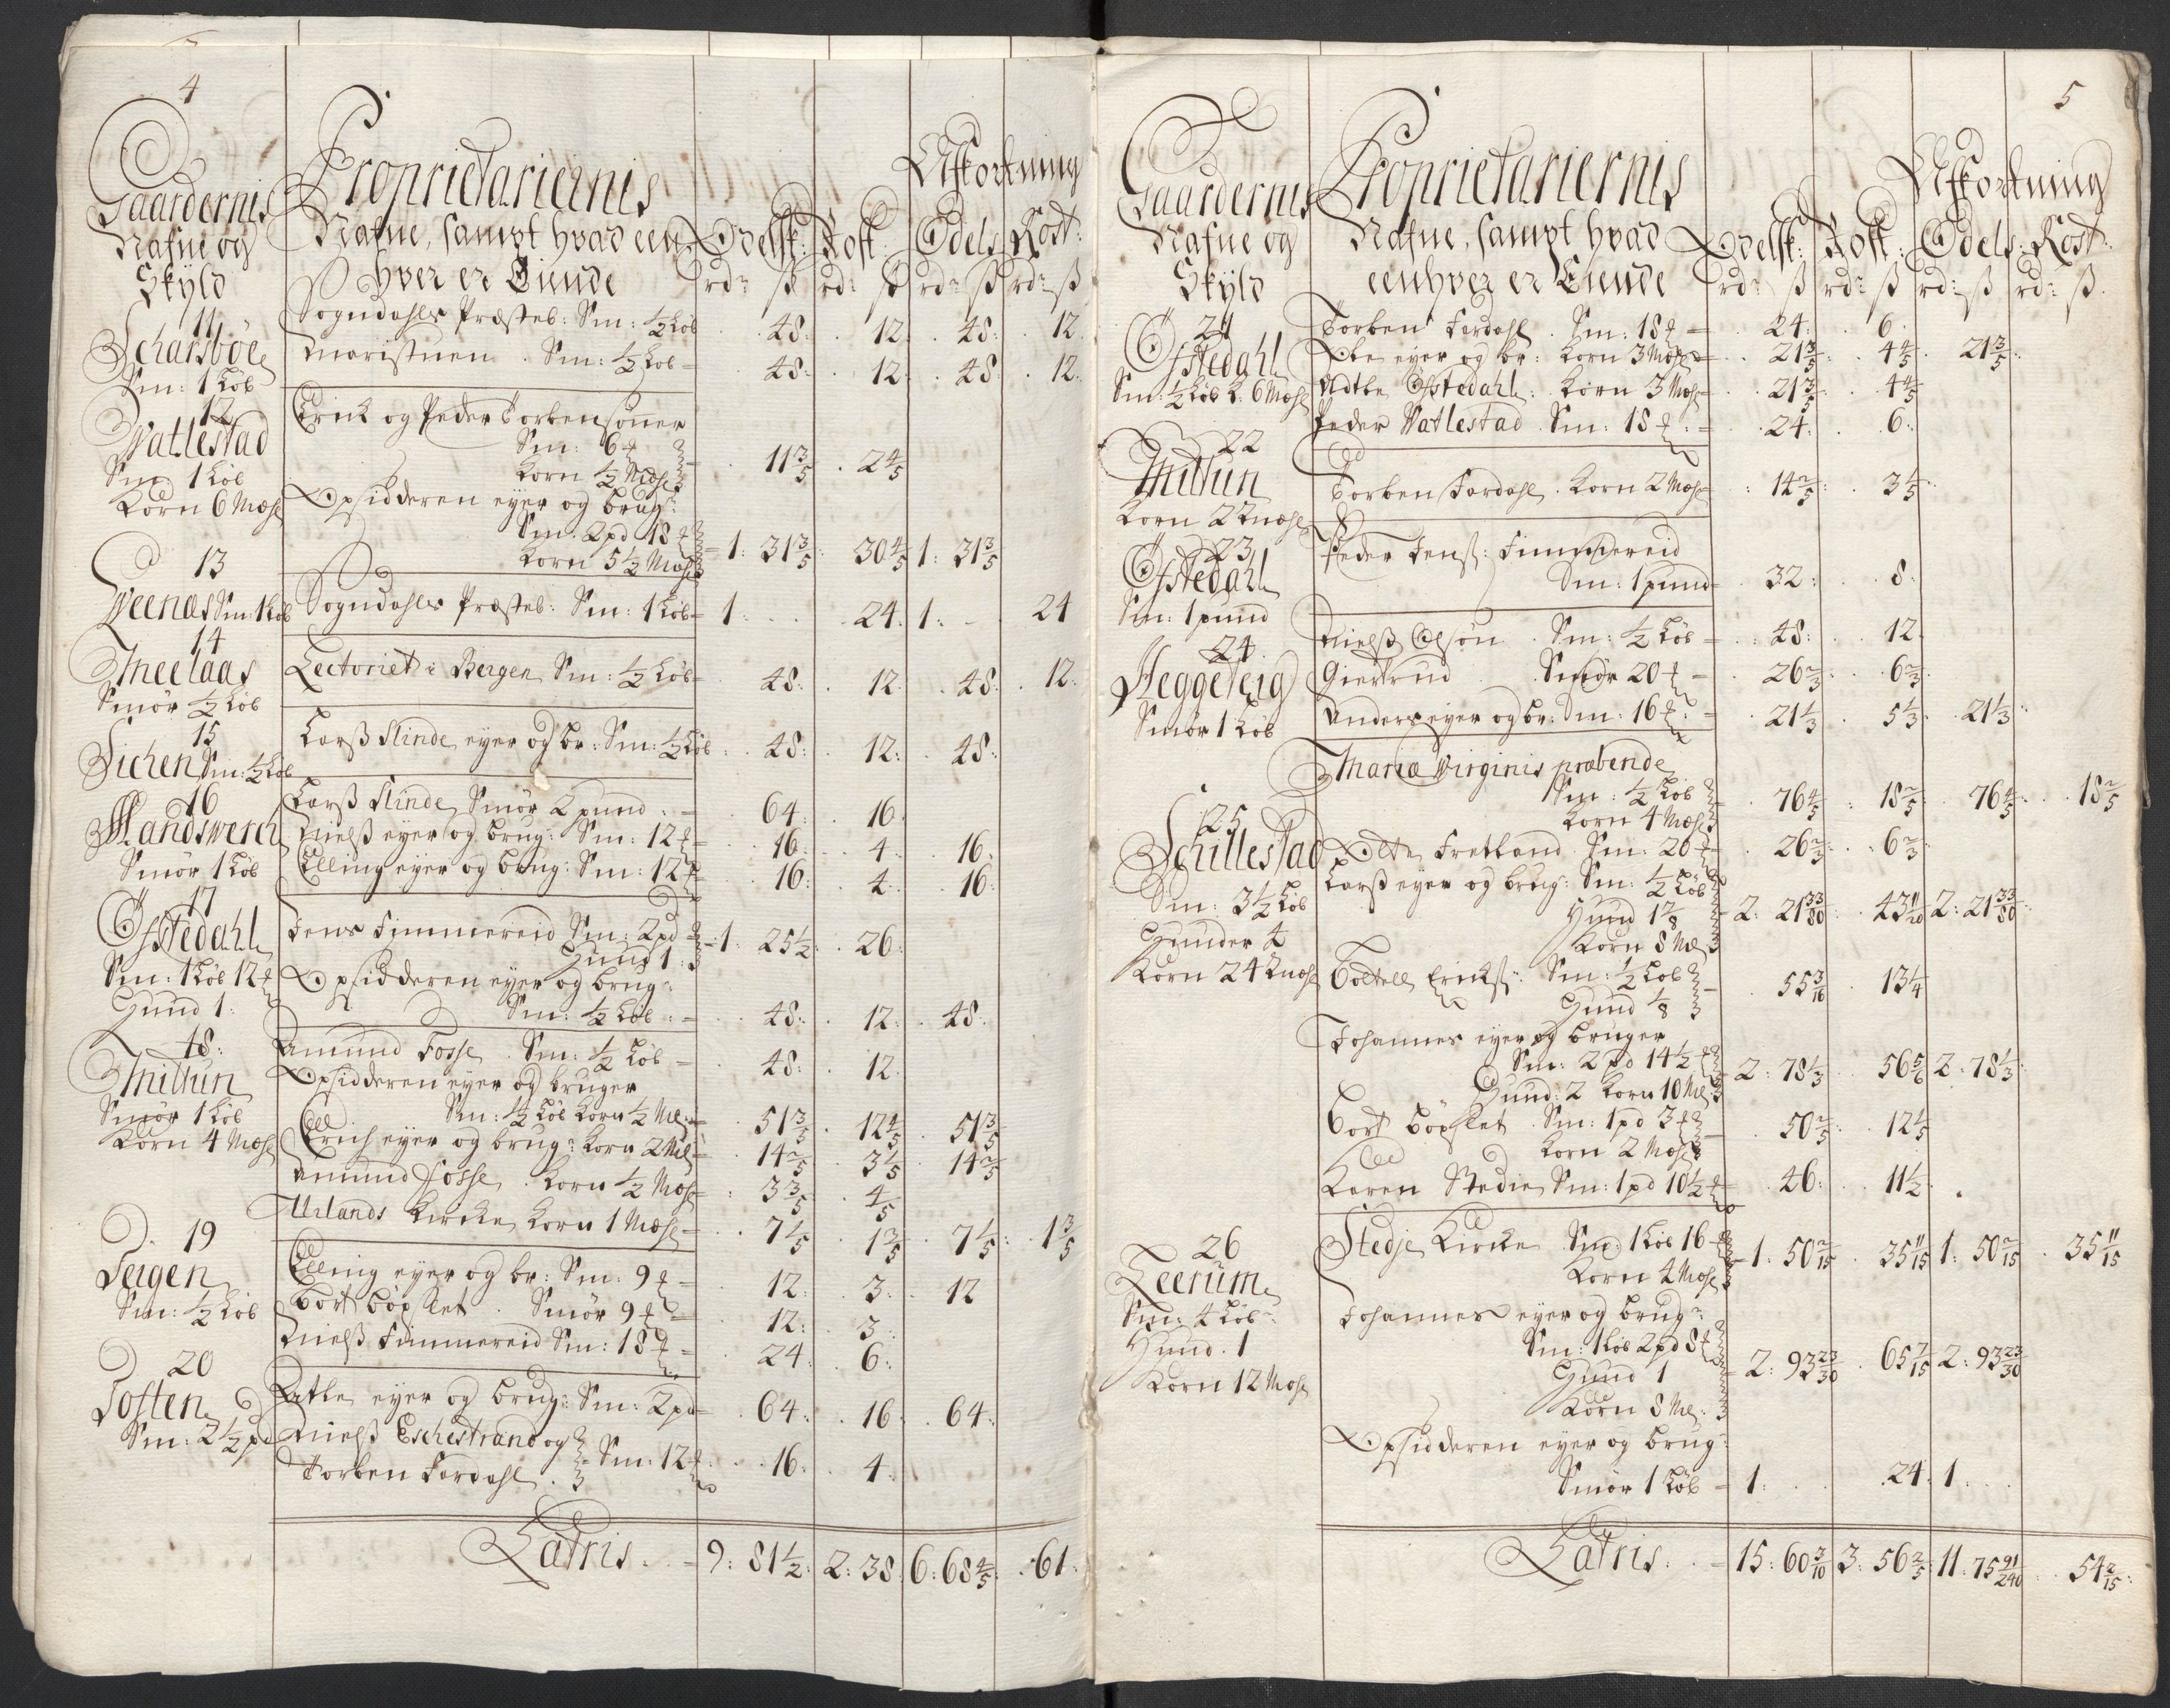 4
Gaardernis
Nafne og
Skyld
Proprietariernis
Nafne, sampt hvad een
hver er Eiende
Odelsk: Rost:
Afkortning
Odels: Rost:
rd: ß rd: ß rd: ß rd: ß
11
Scharsböe
Sm: 1 Löb
Sogndahls Præsteb: Sm: ½ Löb 48: 12 48: 12
Maristuen. Sm: ½ Löb 48: 12: 48: 12.
12
Vatlestad
Sm 1 Löb
Korn 6 Mæhl
Erick og Peder Torbensönner
Sm: 6 ℔
Korn ½ Mæhl 11 3/5 2 4/5
Opsidderen eyer og brug:
Sm. 2 pd 18 ℔
Korn 5½ Mæhl 1: 31 3/5 30 4/5 1: 31 3/5
13
Veenæs Sm: 1 Löb
Sogndahls Præsteb: Sm: 1 Löb 1: 24. 1: 24
14
Meelaas
Smör ½ Löb
Lectoriet i Bergen Sm: ½ Löb 48: 12: 48: 12.
15
Sichen Sm: ½ Löb
Larß Slinde eyer og br: Sm: ½ Löb 48: 12: 48:
16
Handswerch
Smör 1 Löb
Larß Slinde Smör 2 pund: 64: 16
Nielß eyer og brug: Sm: 12 ℔ 16: 4: 16:
Elling eyer og brug: Sm: 12 ℔ 16: 4 16:
17
Öfstedahl
Sm: 1 Löb 12 ℔
Hund 1:
Jens Fimmereid Sm: 2 pd
Hund 1: 1: 25½: 26:
Opsidderen eyer og brug:
Sm: ½ Löb 48: 12: 48:
18:
Mittun
Smör 1 Löb
Korn 4 Mæhl
Amund Fosse. Sm: ½ Löb 48: 12:
Opsidderen eyer og bruger
Sm: ½ Löb Korn ½ Ml: 51 3/5 12 4/5 51 3/5
Erich eyer og brug: Korn 2 Ml 14 2/5 3 1/5 14 2/5
Amund Fosse. Korn ½ Mæhl 3 3/5 4/5
Urlands Kircke Korn 1 Mæhl 7 1/5 1 3/5 7 1/5 1 3/5
19
Teigen
Sm: ½ Löb
Elling eyer og br: Sm: 9 ℔ 12: 3: 12
Bort Böyset. Smör 9 ℔ 12: 3:
Nielß Fimmereid Sm: 18 ℔ 24: 6:
20
Toften
Sm: 2½ pd
Atle eyer og brug: Sm: 2 pd 64: 16: 64:
Nielß Eschestrand og
Torben Fardahl. Sm: 12 ℔ 16: 4:
Latris. 9: 81½: 2: 38: 6: 68 4/5: 61:
5
Gaardernis
Nafne og
Skyld
Proprietariernis
Nafne, sampt hvad
eenhver er Eiende
Odelsk: Rost:
Afkortning
Odels: Rost:
rd: ß rd: ß rd: ß rd: ß.
21
Öfstedahl
Sm: ½ Löb K: 6 Mæhl
Torben Fardahl. Sm: 18 ℔ 24: 6
Ole eyer og br: Korn 3 Mæhl 21 3/5: 4 4/5 21 3/5:
Adtle Öfstedahl: Korn 3 Mæhl 21 3/5 4 4/5
Peder Vatlestad Sm: 18 ℔ 24: 6:
22
Mittun
Korn 2 Mæhl
Torben Fardahl. Korn 2 Mæhl 14 2/5: 3 1/5
23
Öfstedahl
Sm: 1 pund
Peder Jenß: Fimmereid
Sm: 1 pund 32: 8:
24
Heggeteig
Smör 1 Löb
Nielß Olsön. Sm: ½ Löb 48: 12
Giertrud. Smör 20 ℔ 26 2/3: 6 2/3
Anders eyer og br: Sm: 16 ℔ 21 1/3 5 1/3 21 1/3:
25
Schillestad
Sm: 3½ Löb
Hunder 4
Korn 24 Mæhl
Maria Virginis præbende
Sm: ½ Löb
Korn 4 Mæhl 76 4/5: 18 2/5 76 4/5: 18 2/5
Olle Fretland Sm: 20 ℔ 26 2/3: 6 2/3
Larß eyer og brug: Sm: ½ Löb
Hund 1 7/8
Korn 8 Ml 2: 21 33/80 43 11/20 2: 21 33/80
Botell Erichß: Sm: ½ Löb
Hund 1/8 55 3/16 13 1/4
Johannes eyer og bruger
Sm: 2 pd 14½ ℔
Hund: 2 Korn 10 Ml 2: 78 1/3 56 5/6 2: 78 1/3
Bort Böyset. Sm: 1 pd 3 ℔
Korn 2 Mæhl 50 2/5: 12 1/5
Karen Stedie Sm: 1 pd 10½ ℔ 46: 11½.
26
Leerum
Sm: 4 Löb
Hund. 1
Korn 12 Mæhl
Stedje Kircke Sm: 1 Löb 16 ℔
Korn 4 Mæhl 1: 50 2/15 35 11/15 1: 50 2/15 35 11/15
Johannes eyer og brug:
Sm: 1 Löb 2 pd 8 ℔
Hund 1
Korn 8 Ml: 2: 93 23/30 65 7/15 2: 93 23/30
Opsidderen eyer og brug:
Smör 1 Löb 1: 24 1
Latris: 15: 60 3/10 3: 56 2/5: 11: 75 91/240 54 2/15: